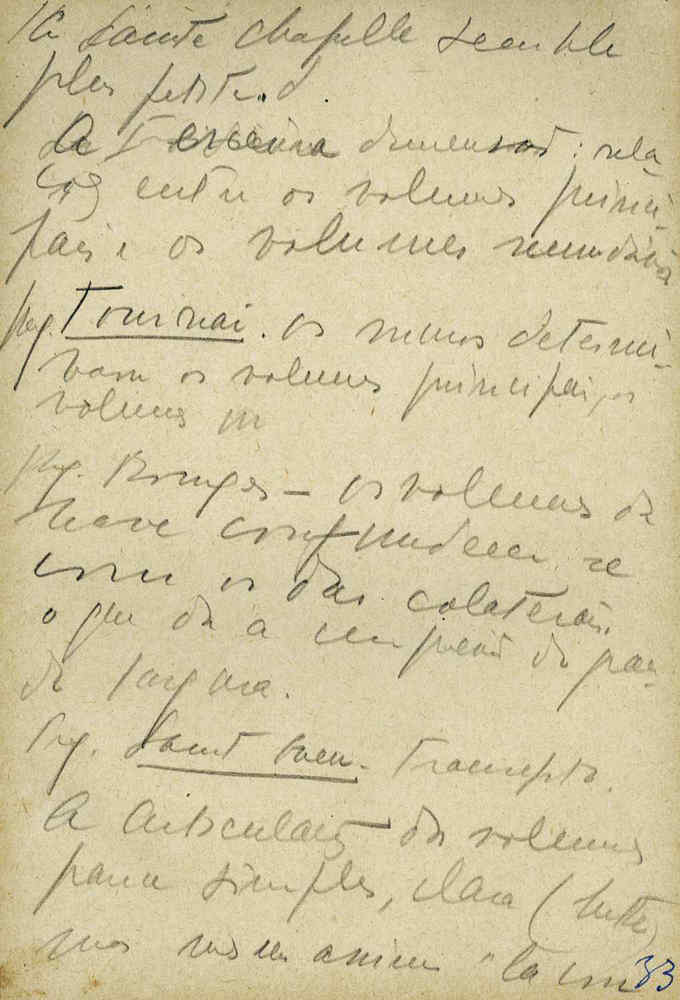 Sainte Chapelle semble
plus petite.
A Terceira dimensão: rela-
ção entre os volumes princi-
pais e os volumes secundários
Fig. Tournai. os muros determi-
nam os volumes principais, os
volumes
Fig. Bruges — os volumes da
nave confundem se
com os das colaterais.
o que dá a impressão de gran-
de largura.
Fig. Saint Ouen. Transepto.
A articulação dos volumes
parece simples, clara
mas
33